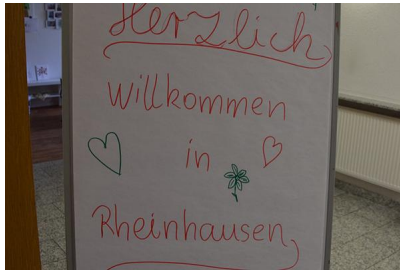 Herzlich
Willkommen
in
Rheinhausen